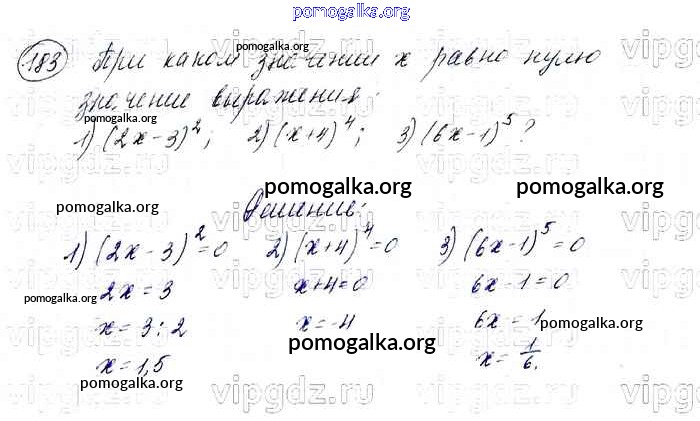 pomogalka.org
183 При каком значении x равно нулю
pomogalka.org
значение выражения:
pomogalka.org
1) (2x-3)²; 2) (x+4)⁴; 3) (6x-1)⁵?
vipgdz.ru vipgdz.ru vipgdz.ru
pomogalka.org pomogalka.org
pomogalka.org
Решение:
1) (2x-3)²=0 2) (x+4)⁴=0 3) (6x-1)⁵=0
2x=3 x+4=0 6x-1=0
pomogalka.org
x=3:2 x=-4 6x=1
pomogalka.org
pomogalka.org
x=1,5 x=1/6.
pomogalka.org
vipgdz.ru vipgdz.ru vipgdz.ru